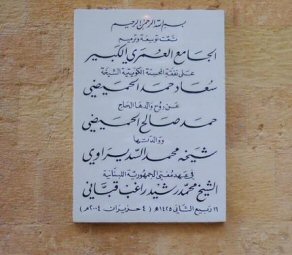 بسم الله الرحمن الرحيم
تمت توسعة وترميم
الجامع العمري الكبير
على نفقة المحسنة الكويتية الشيخة
سعاد حمد الحميضي
عن روح والدها الحاج
حمد صالح الحميضي
ووالدتها
شيخه محمد السديراوي
في عهد مفتي الجمهورية اللبنانية
الشيخ محمد رشيد راغب قباني
١٦ ربيع الثاني ١٤٢٥هـ ( ٤ حزيران ٢٠٠٤م )